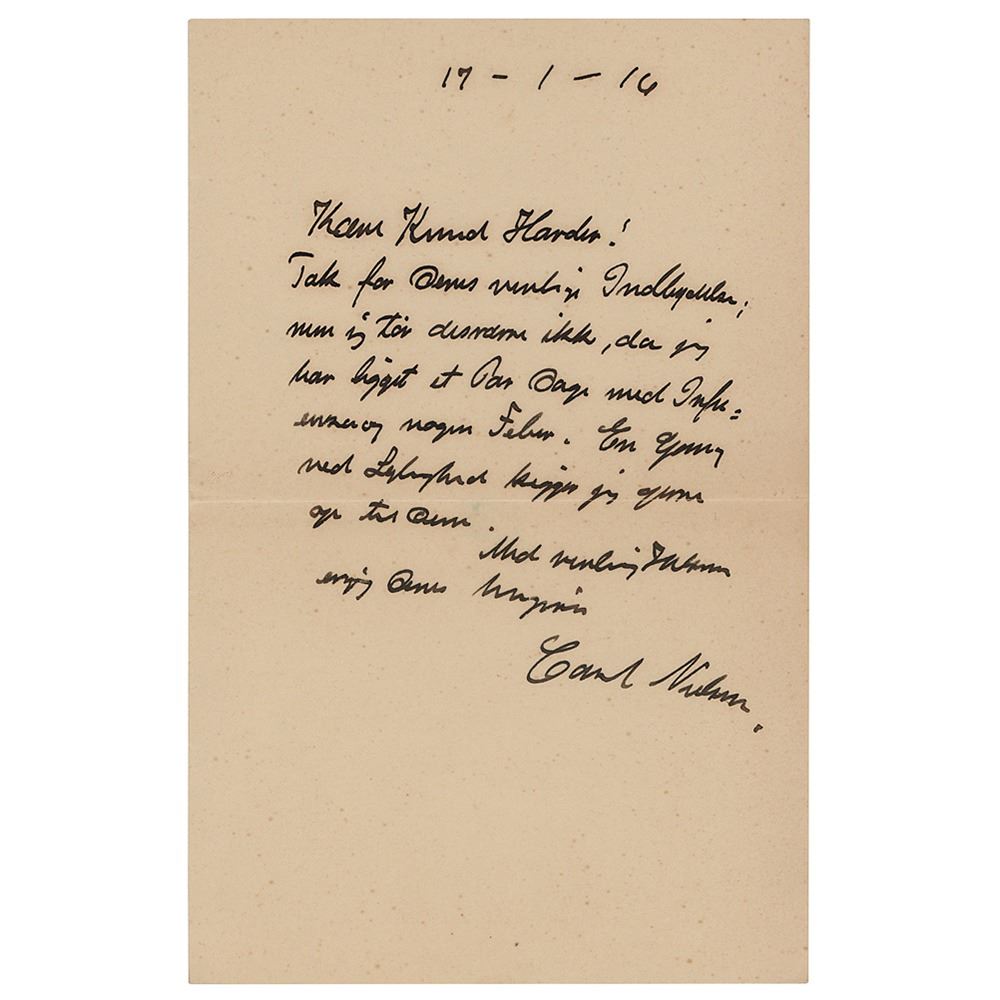 17 - 1 - 16
Kære Knud Harder!
Tak for Deres venlige Indbydelse;
men jeg tør desværre ikke, da jeg
har ligget et Par Dage med Influ=
enza og nogen Feber. En Gang
ved Lejlighed kigger jeg gerne
op til Dem.
Med venlig Hilsen
Deres
Carl Nielsen.